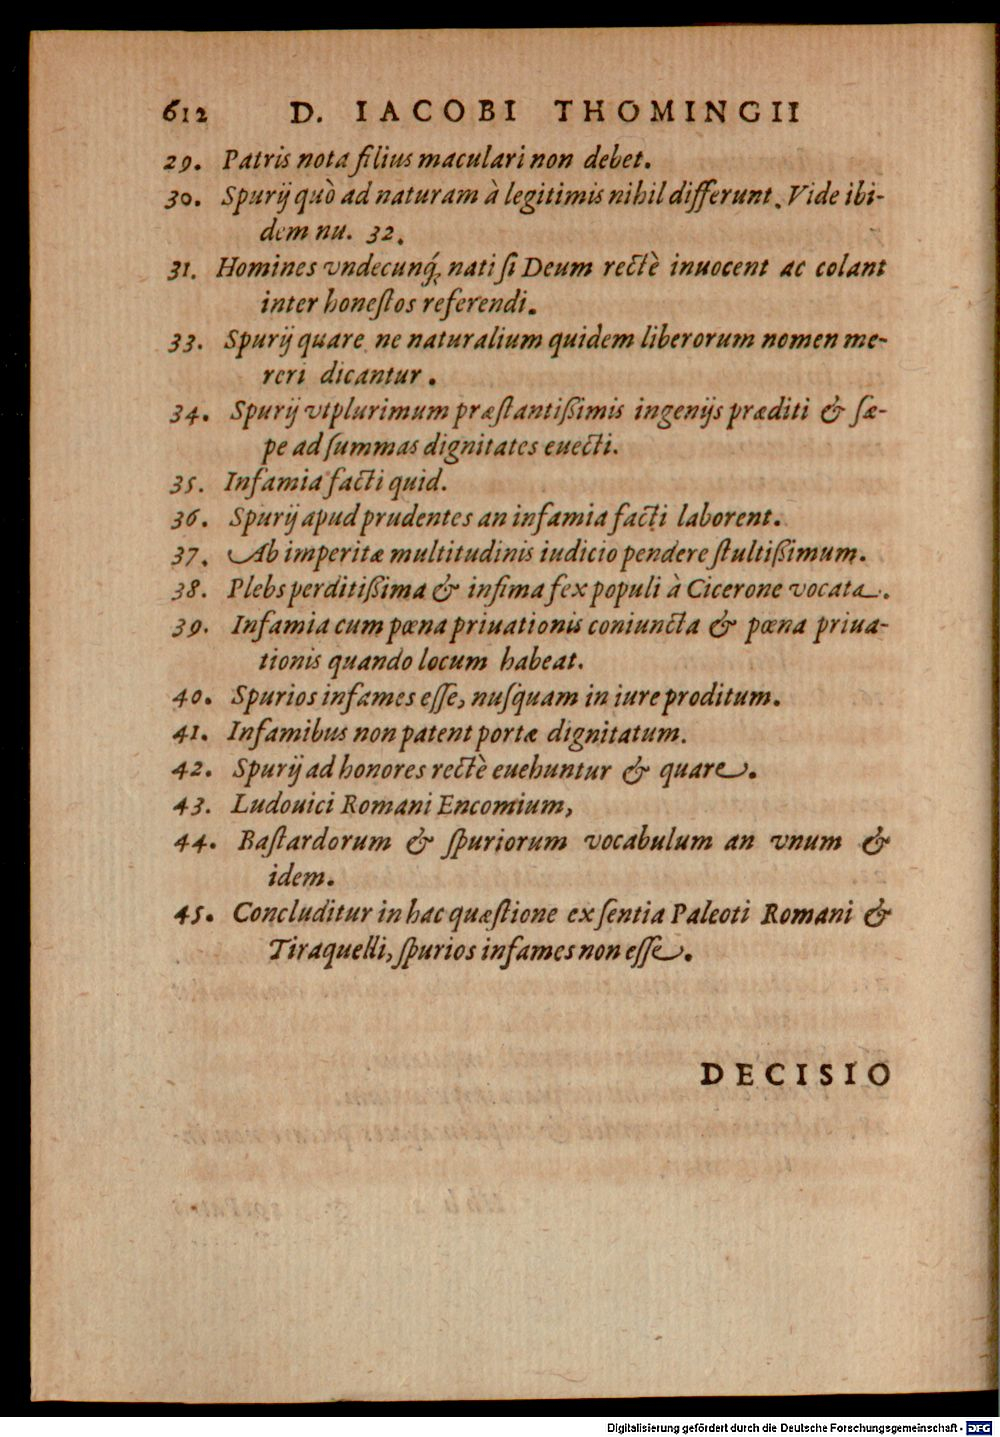 612 D. IACOBI THOMINGII
29. Patris nota filius maculari non debet.
30. Spurij quò ad naturam à legitimis nihil differunt. Vide ibi-
dem nu. 32.
31. Homines vndecunq́; nati ſi Deum rectè inuocent ac colant
inter honeſtos referendi.
33. Spurij quare ne naturalium quidem liberorum nomen me-
reri dicantur.
34. Spurij vtplurimum præſtantiſsimis ingenijs præditi & ſæ-
pe ad ſummas dignitates euecti.
35. Infamia facti quid.
36. Spurij apud prudentes an infamia facti laborent.
37. Ab imperitæ multitudinis iudicio pendere ſtultiſsimum.
38. Plebs perditiſsima & infima fex populi à Cicerone vocata.
39. Infamia cum pœna priuationis coniuncta & pœna priua-
tionis quando locum habeat.
40. Spurios infames eſſe, nuſquam in iure proditum.
41. Infamibus non patent portæ dignitatum.
42. Spurij ad honores rectè euehuntur & quare.
43. Ludouici Romani Encomium,
44. Baſtardorum & ſpuriorum vocabulum an vnum &
idem.
45. Concluditur in hac quæſtione ex ſentia Paleoti Romani &
Tiraquelli, ſpurios infames non eſſe.
DECISIO
Digitalisierung gefördert durch die Deutsche Forschungsgemeinschaft - DFG